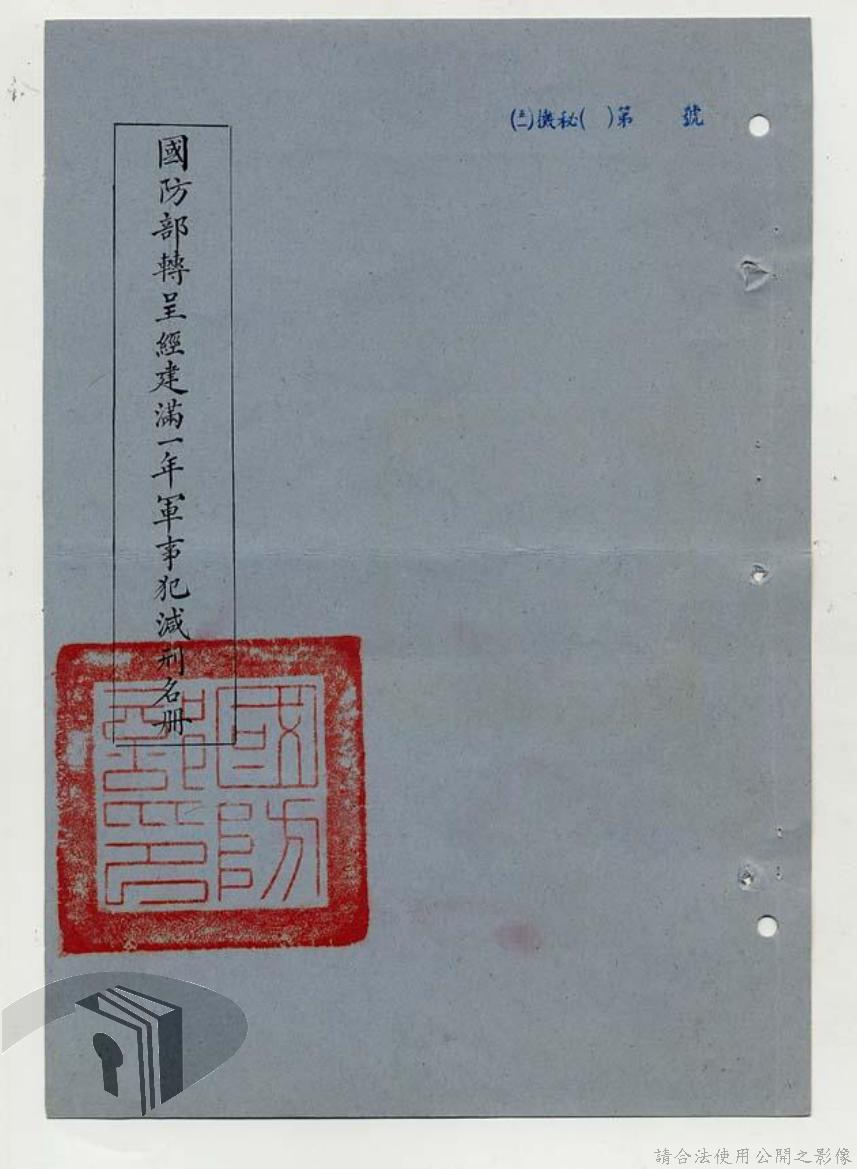 機秘( )第　號
國防部轉呈經建滿一年軍事犯減刑名冊
國防
部印
請合法使用公開之影像